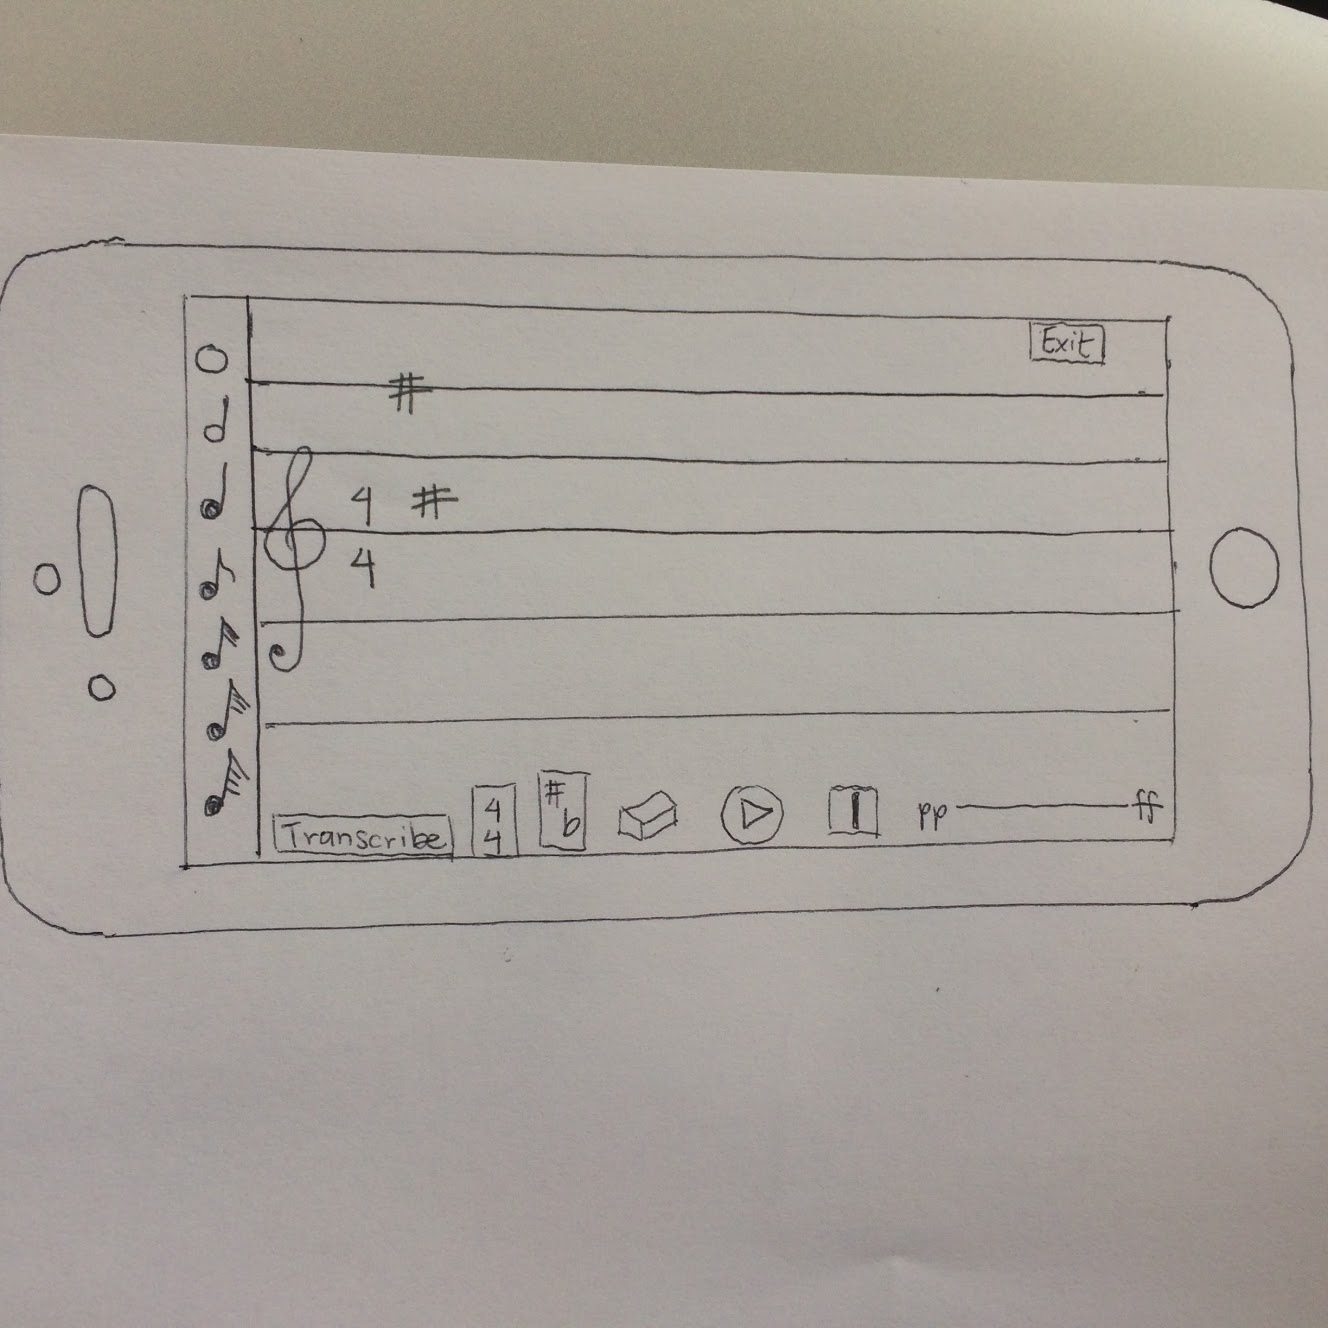 Exit
#
4 #
4
Transcribe 4 4 # b pp ff